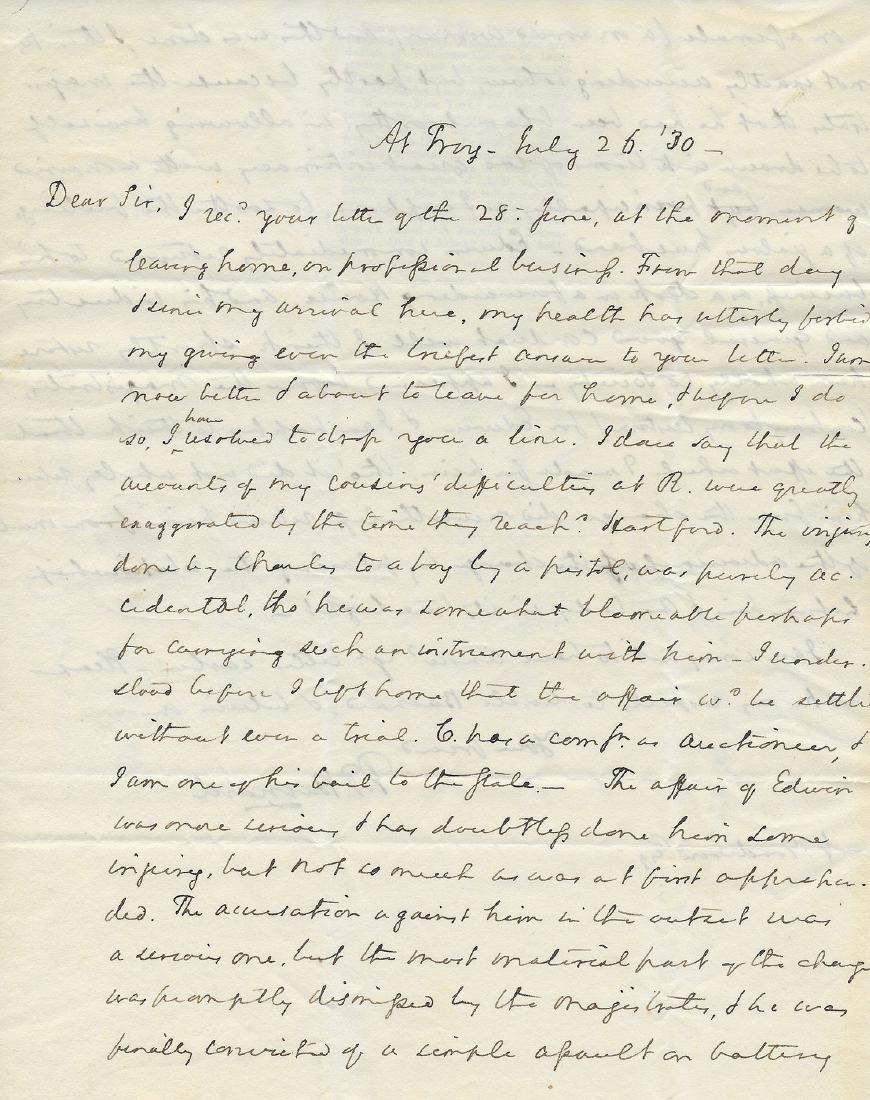 At Troy - July 26. '30 -
Dear Sir, I recd. your letter of the 28. June, at the moment of
leaving home, on professional business. From that day
& since my arrival here, my health has utterly forbid
my giving even the briefest answer to your letter. I am
now better & about to leave for home, & before I do
so, I have resolved to drop you a line. I dare say that the
accounts of my cousins' difficulties at R. were greatly
exaggerated by the time they reachd. Hartford. The injury
done by Charles to a boy by a pistol, was purely ac-
cidental, tho' he was somewhat blameable perhaps
for carrying such an instrument with him - I under-
stood before I left home that the affair wd. be settled
without even a trial. C. has a comsn. as auctioneer, &
I am one of his bail to the State. - The affair of Edwin
was more serious & has doubtless done him some
injury, but not so much as was at first apprehen-
ded. The accusation against him in the outset was
a serious one, but the most material part of the charge
was promptly dismissed by the magistrates, & he was
finally convicted of a simple assault on battery